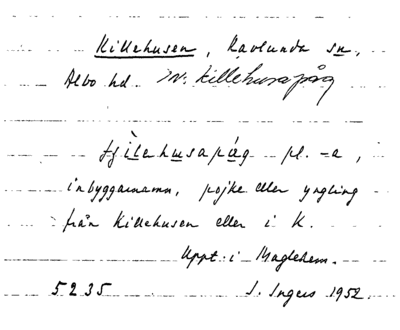 Killehusen, Ravlunda sn,
Albo hd. m. killehusapåg
tjilehusapåg pl. -a,
inbyggarnamn, pojke eller yngling
från Killehusen eller i K.
Uppt. i Maglehem.
5235 I. Ingers 1952.